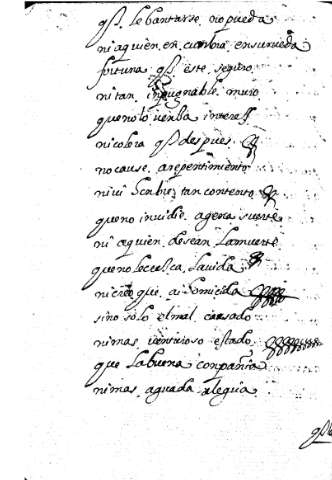 q̃ lebantarse. no pueda
ni a quien. en cumbre ensu rueda
fortuna q̃ este seguro
ni tan muro
que no lo venba interes
ni colera q̃ despues
no cause. arepentimiento
ni vi tan contento
que no invidie agena suerte
ni a quien desean La muerte
que no le cresca La vida
ni
sino solo el mal casado
ni mas estado
que La buena conpañia
ni mas aguada alegria